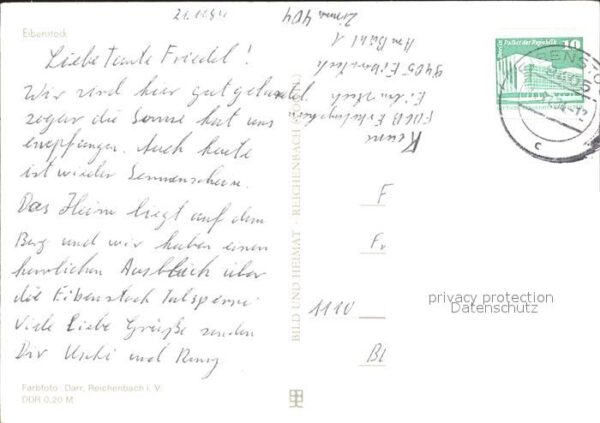 Eibenstock
Liebe Tante Friedel!
Wir sind hier gut gelandet
sogar die Sonne hat uns
empfangen. Auch heute
ist wieder Sonnenschein.
Das Heim liegt auf dem
Berg und wir haben einen
herrlichen Ausblick über
die Eibenstock Talsperre
Viele Liebe Grüße senden
Dir Uschi und
Farbfoto: Darr, Reichenbach i. V.
DDR 0,20 M
BILD UND HEIMAT REICHENBACH
FDGB
Eibenstock
9405 Eibenstock
Am Bühl 1
Zimmer 404
Palast der Republik
10
F
Fr
1110
Bl
privacy protection
Datenschutz